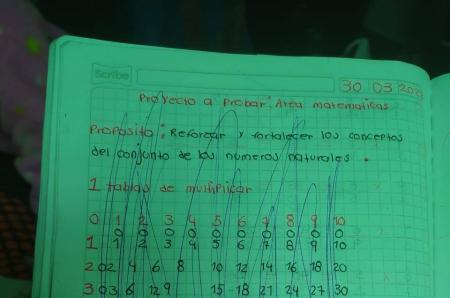 Scribe
30 03 202
Proyecto a probar: Area matematicas
Proposito: Reforzar y fortalecer los conceptos
del conjunto de los numeros naturales.
1 tablas de multiplicar
0 1 2 3 4 5 6 7 8 9 10
0 0 0 0 0 0 0 0 0 0
1 1 2 3 4 5 6 7 8 9 10
2 0 2 4 6 8 10 12 14 16 18 20
3 0 3 6 12 9 15 18 21 24 27 30